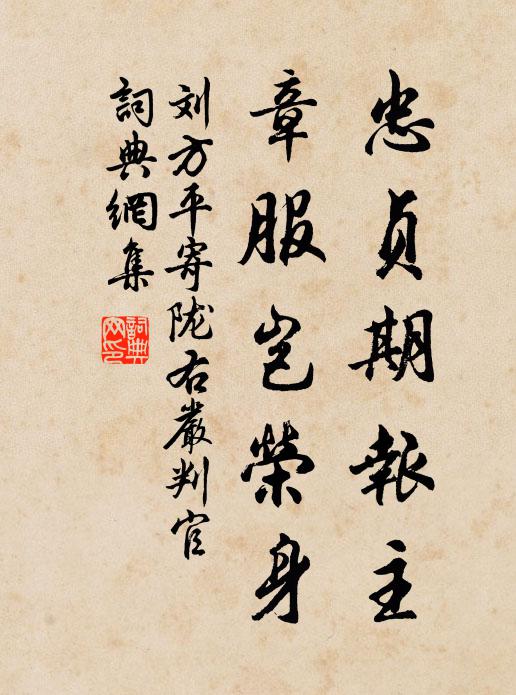 忠貞期報主
章服豈榮身
刘方平寄陇右嚴判官
詞典網集
詞典網印